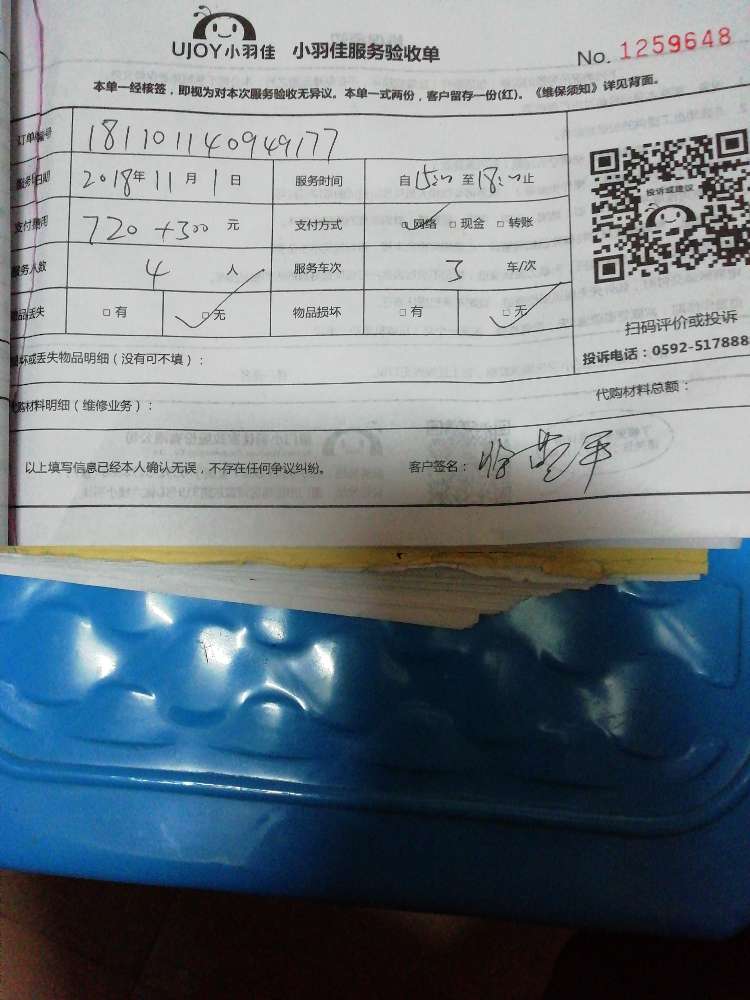 UJOY小羽佳 小羽佳服务验收单 No. 1259648
本单一经核签，即视为对本次服务验收无异议。本单一式两份，客户留存一份(红)。《维保须知》详见背面。
订单编号 181101140949177
服务日期 2018年 11 月 1 日 服务时间 自 15:00 至 18:00 止
支付费用 720+300 元 支付方式 □网络 □现金 □转账
服务人数 4 人 服务车次 3 车/次
物品丢失 □有 □无 物品损坏 □有 □无
投诉或建议
扫码评价或投诉
投诉电话：0592-517888
损坏或丢失物品明细（没有可不填）：
代购材料明细（维修业务）： 代购材料总额：
以上填写信息已经本人确认无误，不存在任何争议纠纷。 客户签名：